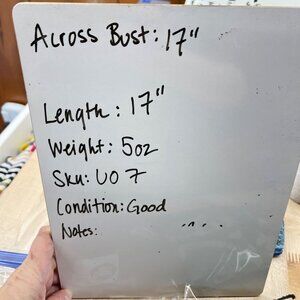 Across Bust: 17"
Length: 17"
Weight: 5oz
Sku: UO 7
Condition: Good
Notes: